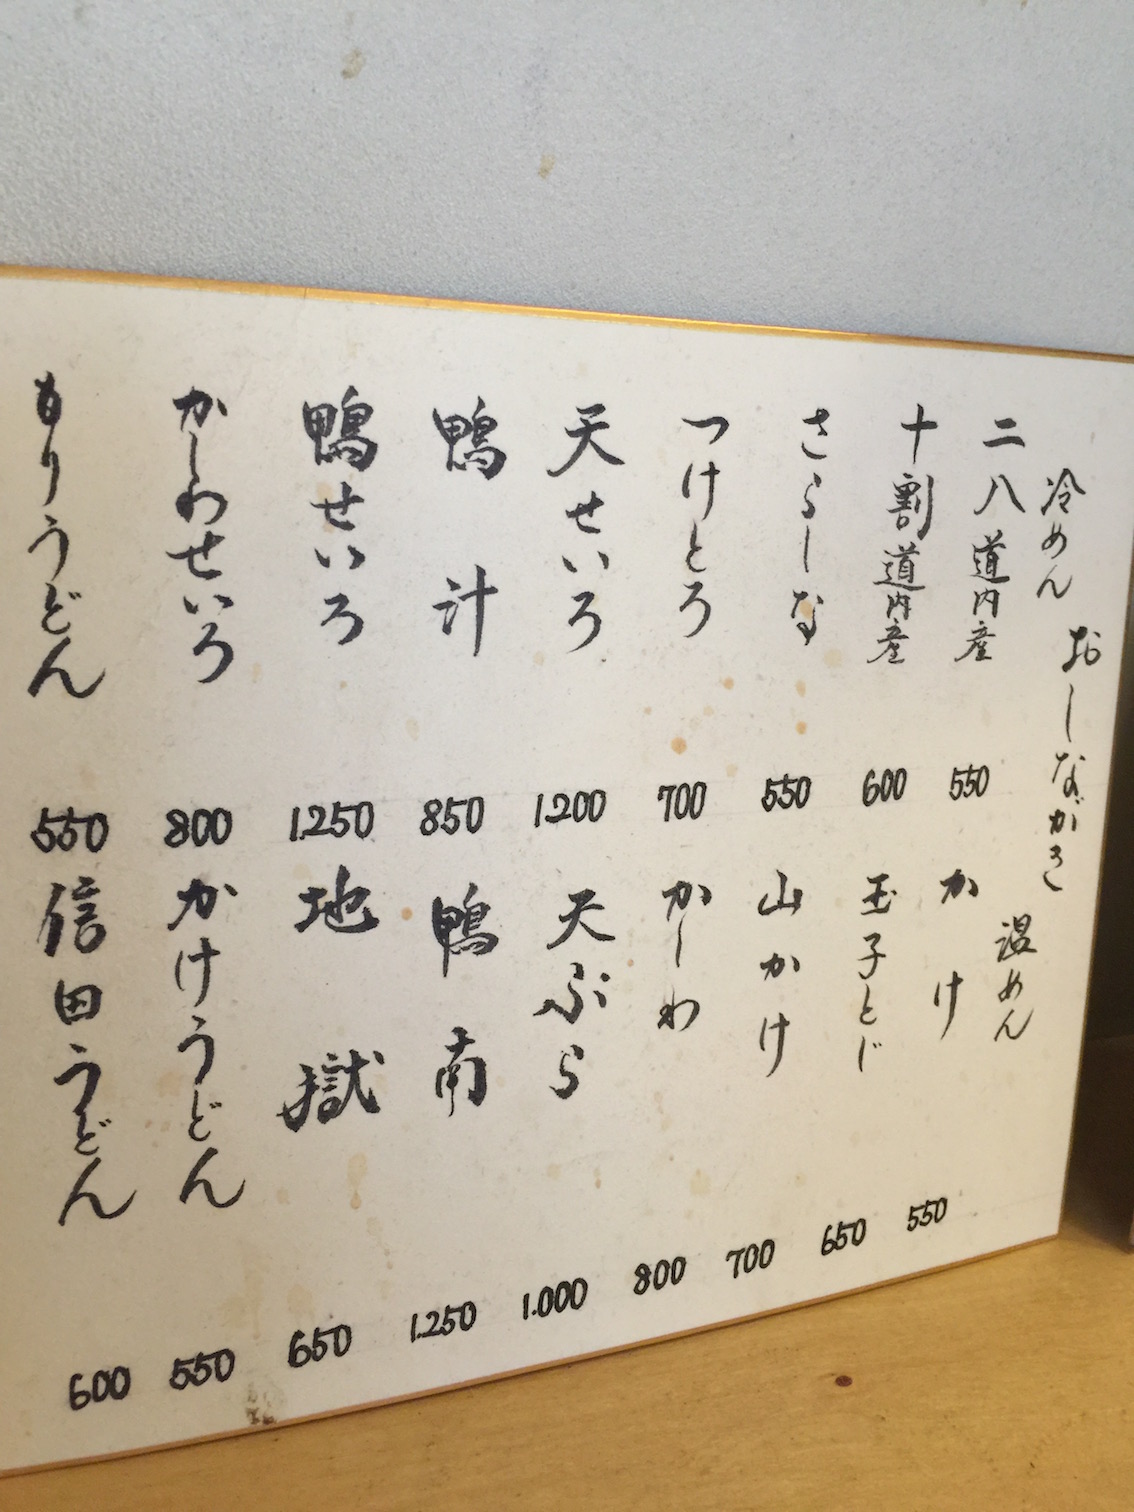 おしながき
冷めん
二八 道内産 550
十割 道内産 600
さらしな 550
つけとろ 700
天せいろ 1.200
鴨汁 850
鴨せいろ 1.250
かしわせいろ 800
もりうどん 550
温めん
かけ 550
玉子とじ 650
山かけ 700
かしわ 800
天ぷら 1.000
鴨南 1.250
地獄 650
かけうどん 550
信田うどん 600